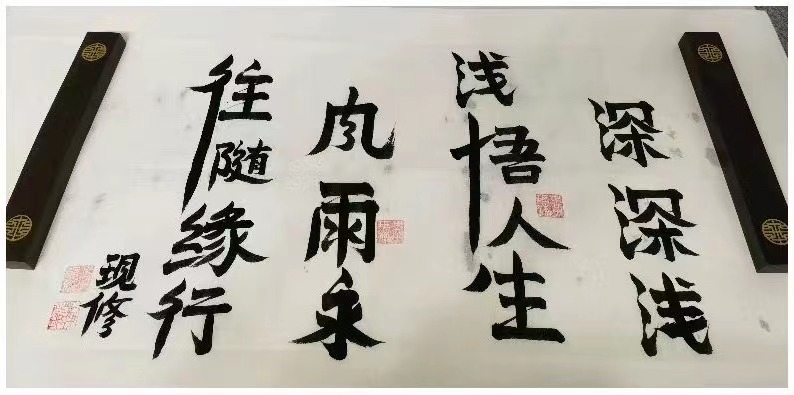 深深浅
浅悟人生
风雨永
往随缘行
現修